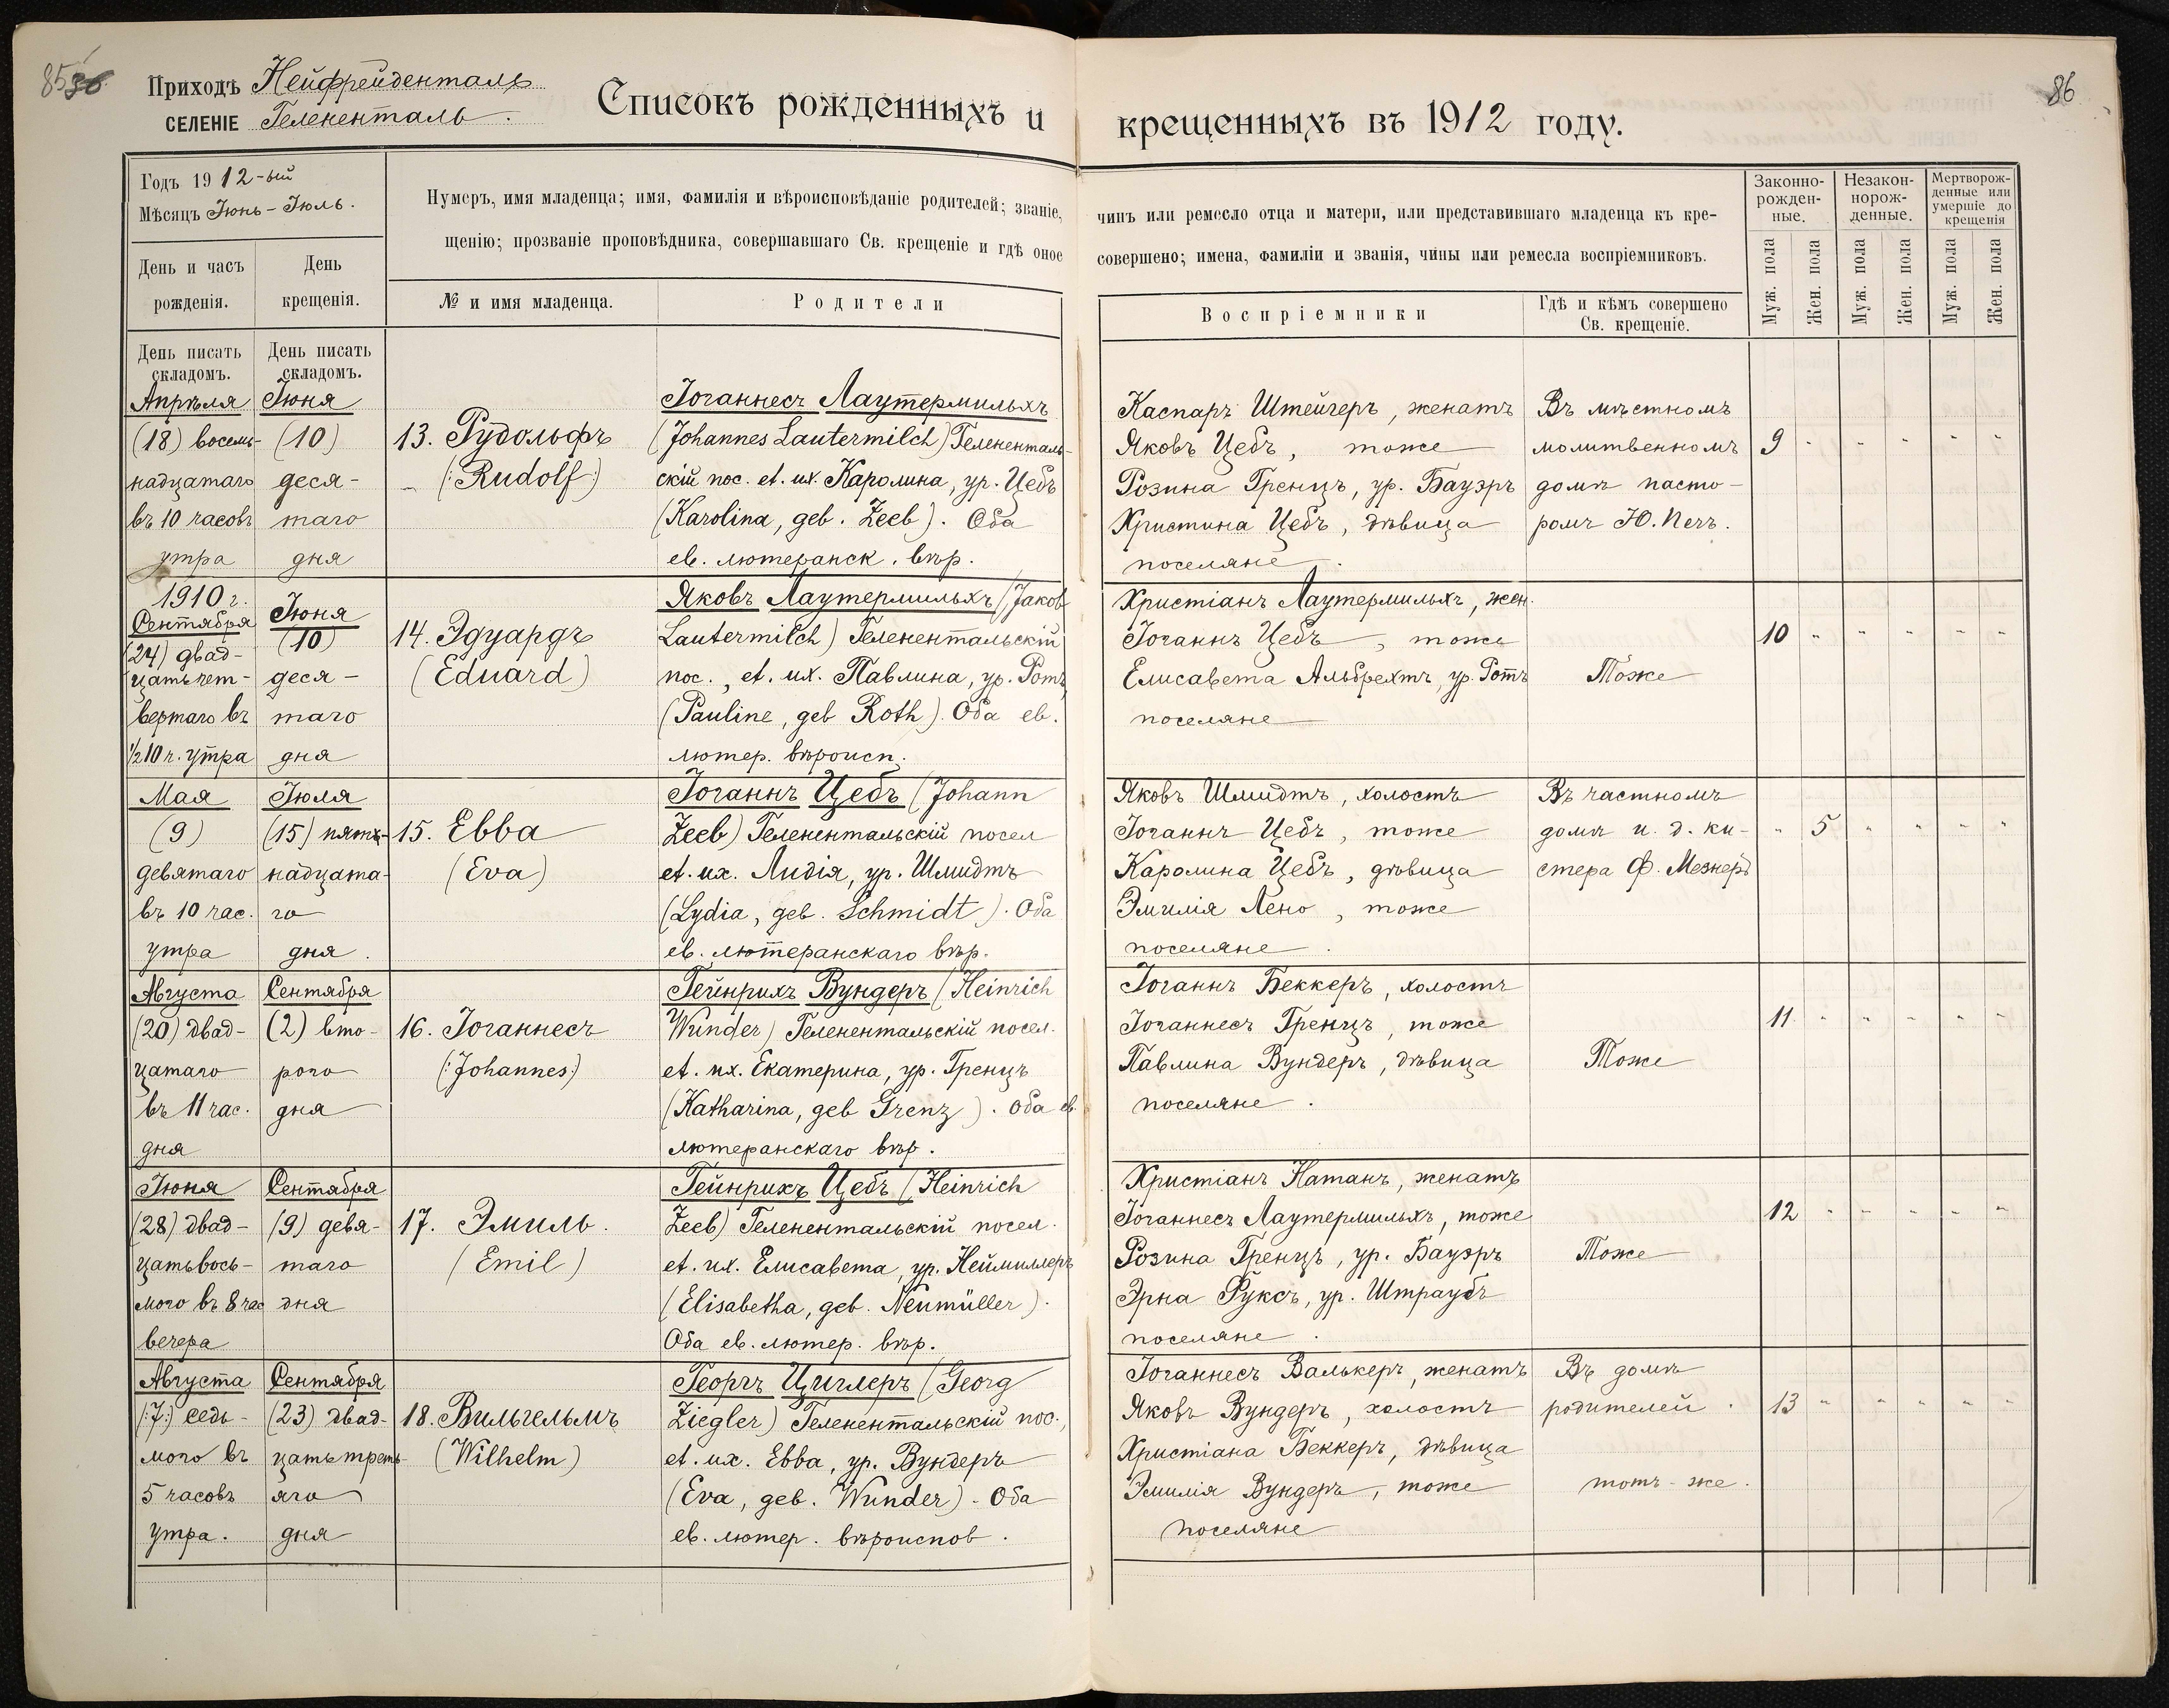 85
Приходъ Нейфрейденталь
СЕЛЕНІЕ Гелененталь.
Списокъ рожденныхъ и крещенныхъ въ 1912 году.
86
Годъ 1912-ый
Мѣсяцъ Іюнь - Іюль.
День и часъ рожденія.
День крещенія.
Нумеръ, имя младенца; имя, фамилія и вѣроисповѣданіе родителей; званіе, чинъ или ремесло отца и матери, или представившаго младенца къ кре-
щенію; прозваніе проповѣдника, совершавшаго Св. крещеніе и гдѣ оное совершено; имена, фамиліи и званія, чины или ремесла воспріемниковъ.
№ и имя младенца.
Родители
Воспріемники
Гдѣ и кѣмъ совершено
Св. крещеніе.
Законно-
рожден-
ные.
Незакон-
норож-
денные.
Мертворож-
денные или
умершіе до
крещенія
Муж. пола
Жен. пола
Муж. пола
Жен. пола
Муж. пола
Жен. пола
День писать
складомъ.
День писать
складомъ.
Апрѣля
(18) восемь-
надцатаго
въ 10 часовъ
утра
Іюня
(10)
деся-
таго
дня
13. Рудольфъ
(:Rudolf:)
Іоганнесъ Лаутермильхъ
(Johannes Lautermilch) Гелененталь-
скій пос. et. ux. Каролина, ур. Цебъ
(Karolina, geb. Zeeb). Оба
ев. лютеранск. вѣр.
Каспаръ Штейгеръ, женатъ
Яковъ Цебъ, тоже
Розина Гренцъ, ур. Бауэръ
Христина Цебъ, дѣвица
поселяне.
Въ мѣстномъ
молитвенномъ
домѣ пасто-
ромъ Ю. Печъ.
9 " " " " "
1910 г.
Сентября
(24) двад-
цать чет-
вертаго въ
½10 ч. утра
Іюня
(10)
деся-
таго
дня
14. Эдуардъ
(Eduard)
Яковъ Лаутермильхъ (Jakob
Lautermilch) Геленентальскій
пос., et. ux. Павлина, ур. Ротъ
(Pauline, geb Roth). Оба ев.
лютер. вѣроисп.
Христіанъ Лаутермильхъ, жен.
Іоганнъ Цебъ, тоже
Елисавета Альбрехтъ, ур. Ротъ
поселяне
Тоже
10 " " " " "
Мая
(9)
девятаго
въ 10 час.
утра
Іюля
(15) пятъ-
надцата-
го
дня.
15. Евва
(Eva)
Іоганнъ Цебъ (Johann
Zeeb) Геленентальскій посел
et. ux. Лидія, ур. Шмидтъ
(Lydia, geb. Schmidt). Оба
ев. лютеранскаго вѣр.
Яковъ Шмидтъ, холостъ
Іоганнъ Цебъ, тоже
Каролина Цебъ, дѣвица
Эмилія Лено, тоже
поселяне.
Въ частномъ
домѣ и. д. ки-
стера Ф. Мезнеръ
" 5 " " " "
Августа
(20) двад-
цатаго
въ 11 час.
дня
Сентября
(2) вто-
рого
дня
16. Іоганнесъ
(:Johannes:)
Гейнрихъ Вундеръ (Heinrich
Wunder) Геленентальскій посел.
et. ux. Екатерина, ур. Гренцъ
(Katharina, geb Grenz). Оба ев.
лютеранскаго вѣр.
Іоганнъ Беккеръ, холостъ
Іоганнесъ Гренцъ, тоже
Павлина Вундеръ, дѣвица
поселяне.
Тоже
11 " " " " "
Іюня
(28) двад-
цатьвось-
мого въ 8 час
вечера
Сентября
(9) девя-
таго
дня
17. Эмиль.
(Emil)
Гейнрихъ Цебъ (Heinrich
Zeeb) Геленентальскій посел.
et. ux. Елисавета, ур. Неймиллеръ
(Elisabetha, geb. Neumüller).
Оба ев. лютер. вѣр.
Христіанъ Натанъ, женатъ
Іоганнесъ Лаутермильхъ, тоже
Розина Гренцъ, ур. Бауэръ
Эрна Фуксъ, ур. Штраубъ
поселяне.
Тоже
12 " " " " "
Августа
(:7:) седь-
мого въ
5 часовъ
утра.
Сентября
(23) двад-
цатьтреть-
яго
дня
18. Вильгельмъ
(Wilhelm)
Георгъ Циглеръ (Georg
Ziegler) Геленентальскій пос.,
et. ux. Евва, ур. Вундеръ
(Eva, geb. Wunder). Оба
ев. лютер. вѣроиспов.
Іоганнесъ Валькеръ, женатъ
Яковъ Вундеръ, холостъ
Христіана Беккеръ, дѣвица
Эмилія Вундеръ, тоже
поселяне
Въ домѣ
родителей.
тотъ-же.
13 " " " " "